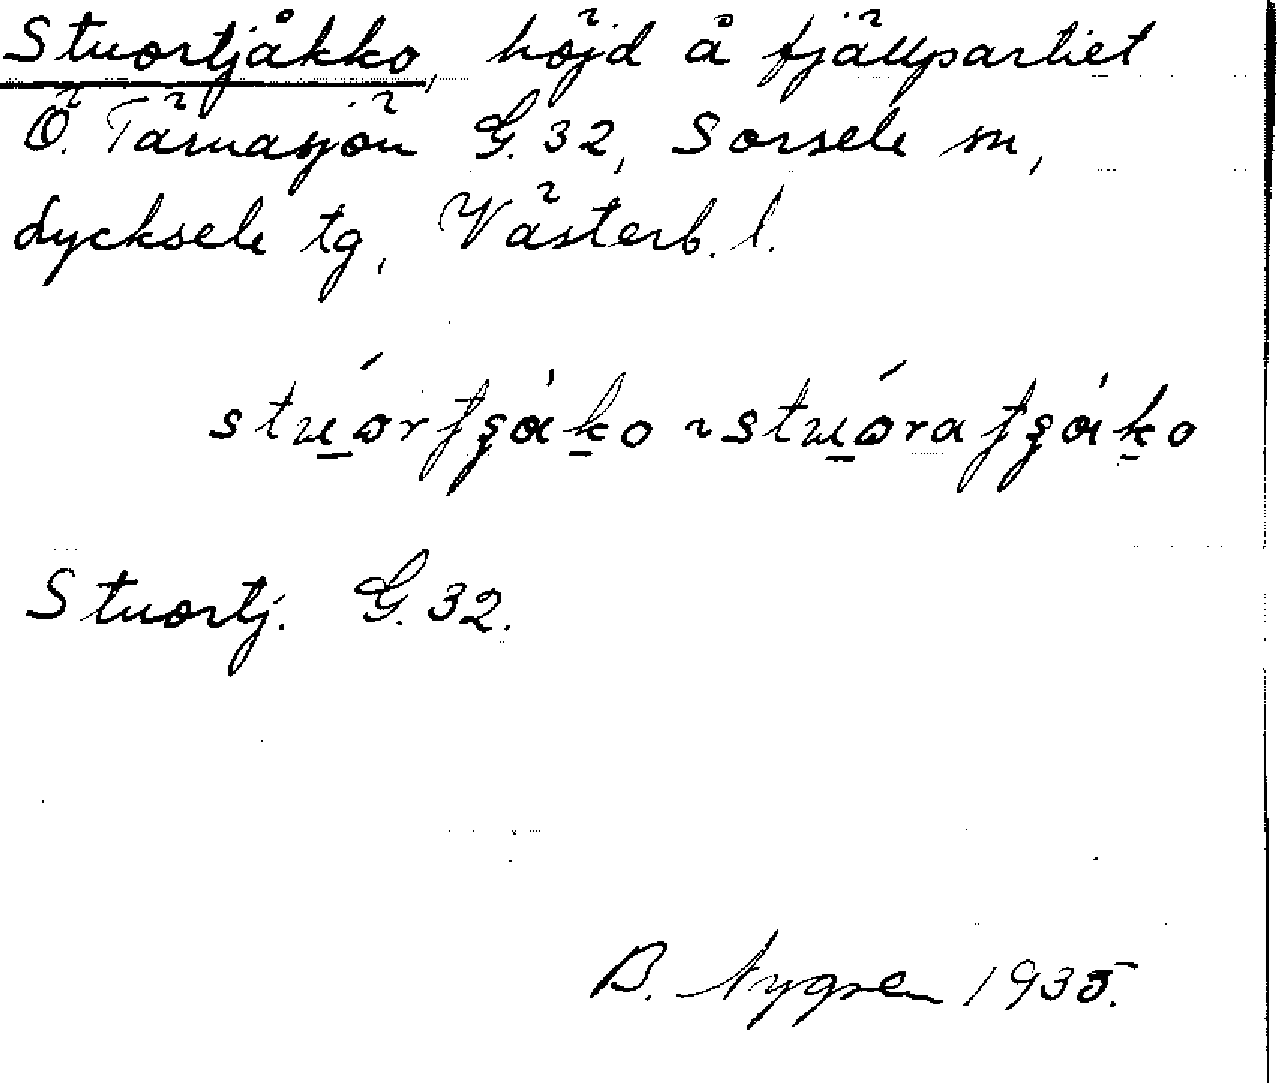 Stuortjåkko, höjd å fjällpartiet
Ö. Tärnasjön G. 32, Sorsele sn,
Lycksele tg, Västerb. l.
Stuortj. G. 32.
B. Nygren 1935.